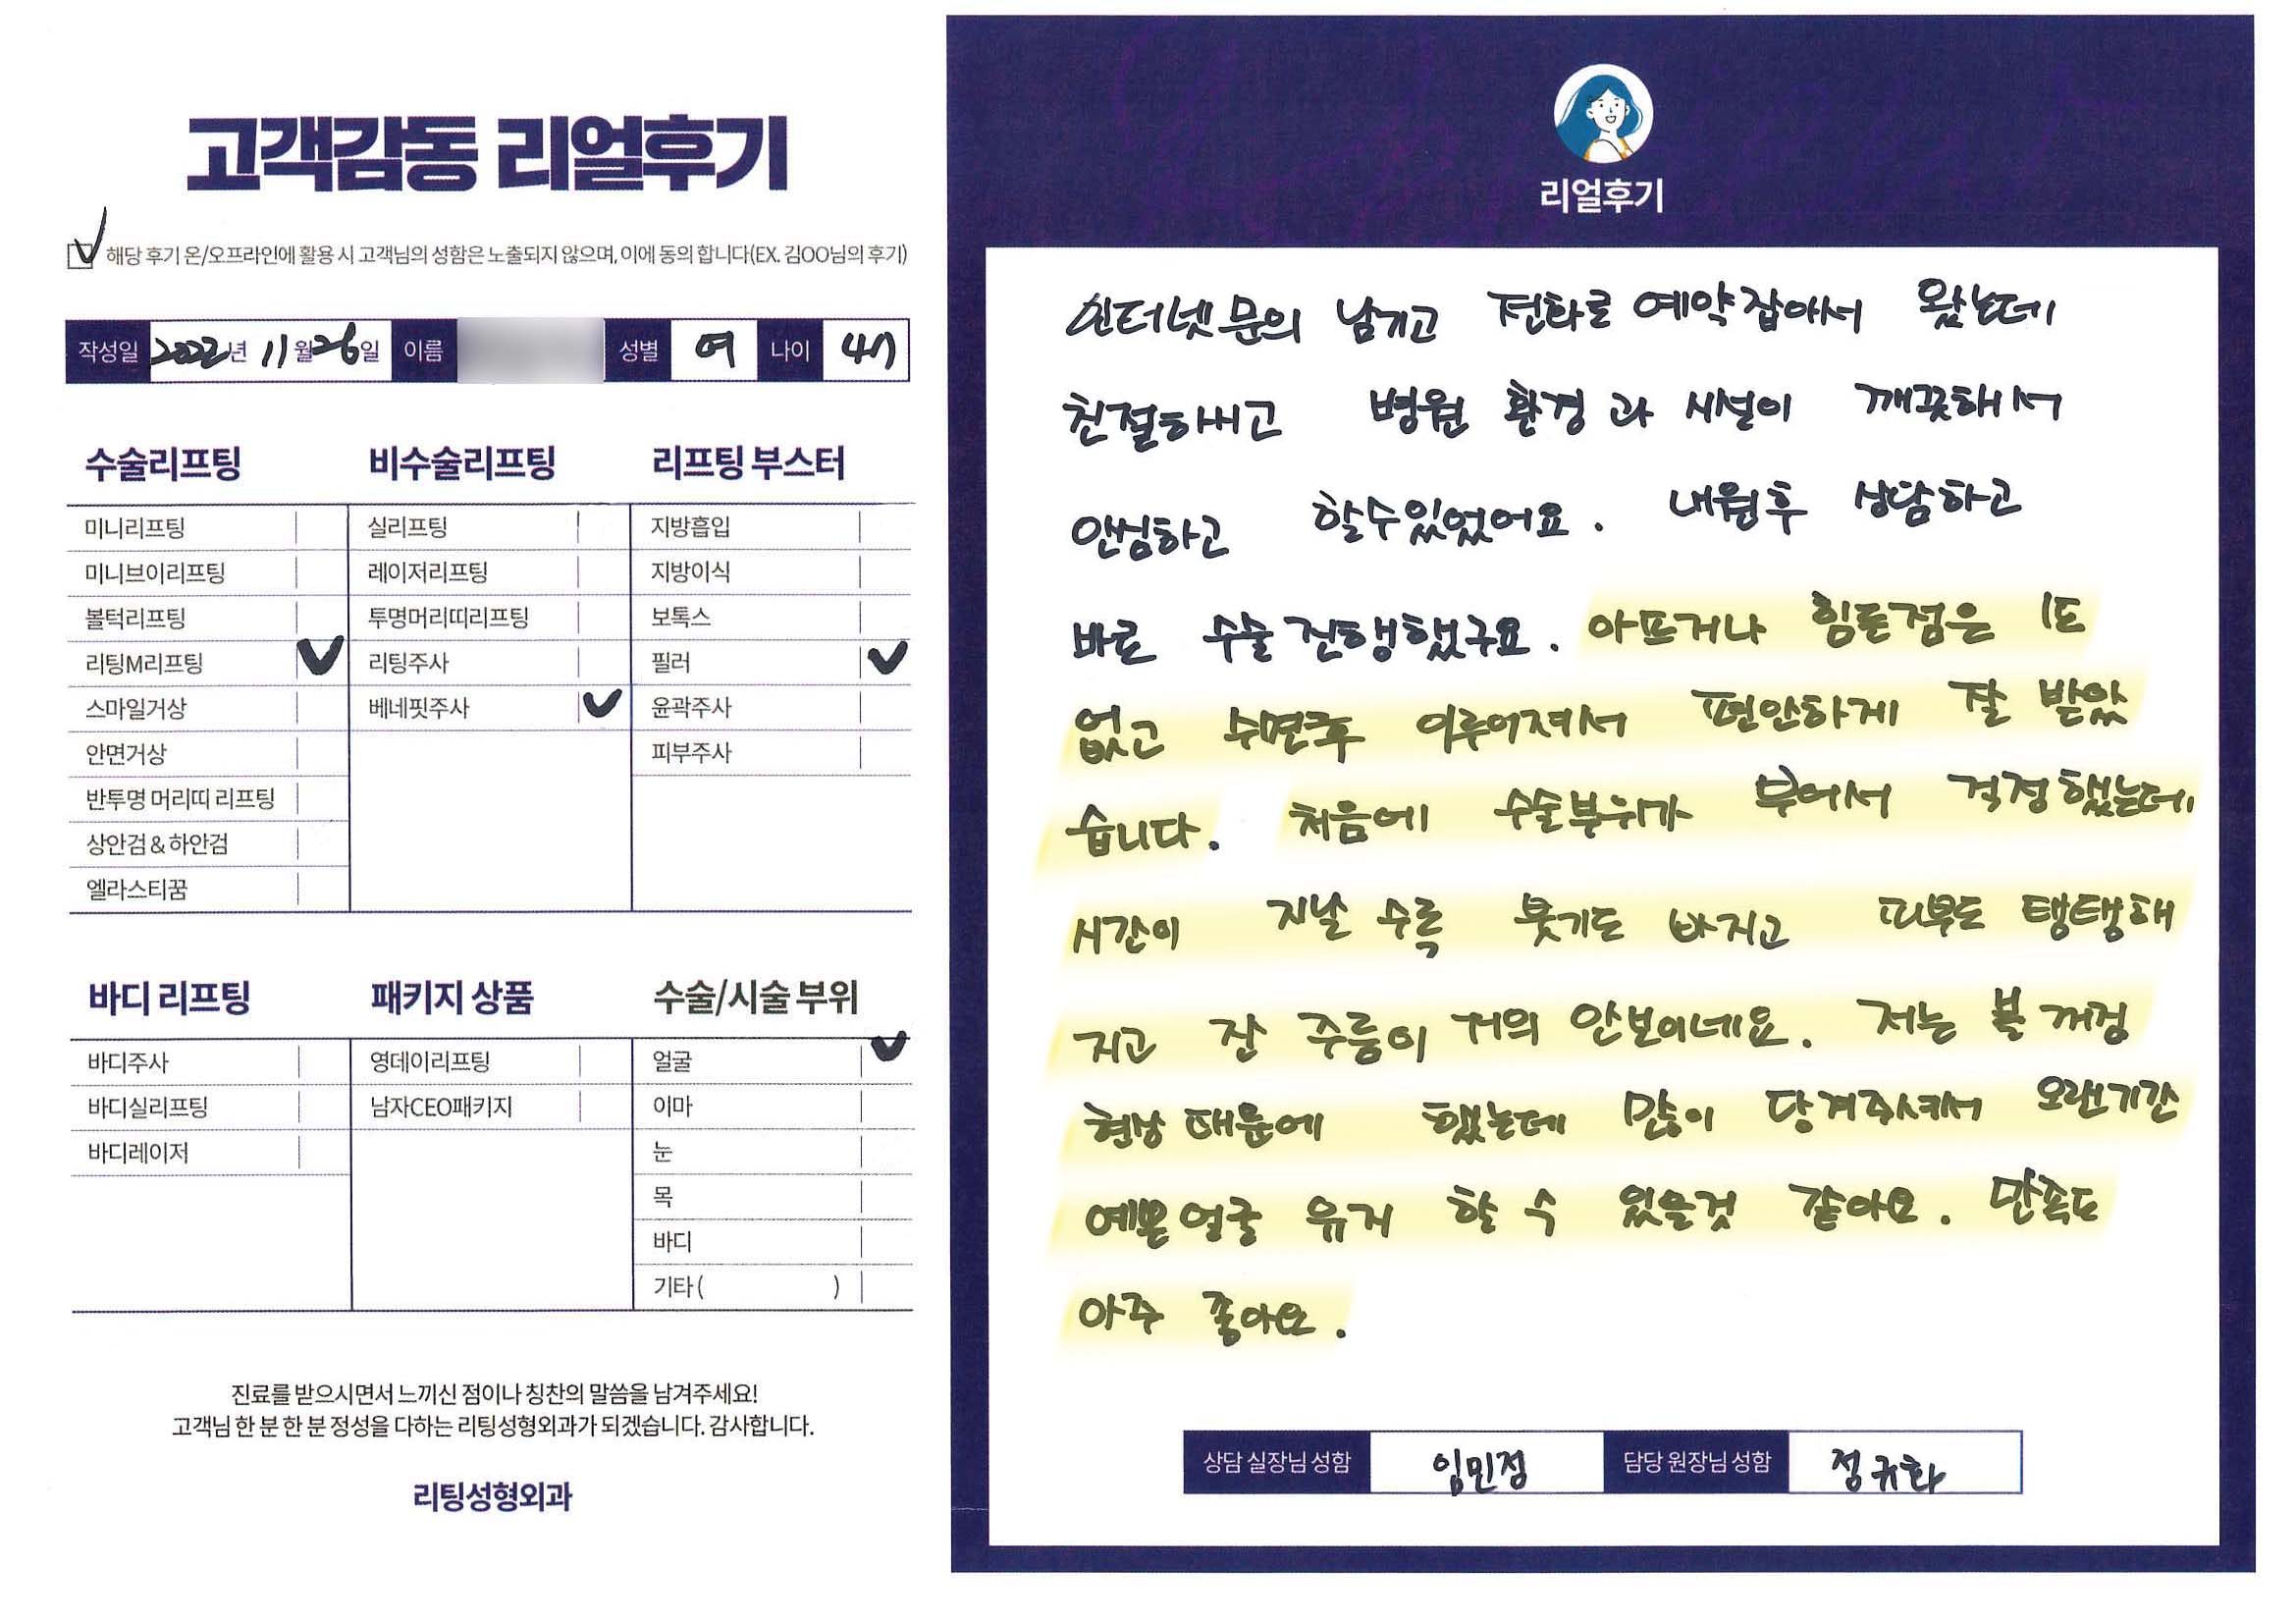 고객감동 리얼후기
해당 후기 온/오프라인에 활용 시 고객님의 성함은 노출되지 않으며, 이에 동의 합니다(EX. 김OO님의 후기)
작성일 2022년 11월 26일 이름 성별 여 나이 47
수술리프팅
미니리프팅
미니브이리프팅
볼턱리프팅
리팅M리프팅
스마일거상
안면거상
반투명 머리띠 리프팅
상안검 & 하안검
엘라스티꿈
비수술리프팅
실리프팅
레이저리프팅
투명머리띠리프팅
리팅주사
베네핏주사
리프팅 부스터
지방흡입
지방이식
보톡스
필러
윤곽주사
피부주사
바디 리프팅
바디주사
바디실리프팅
바디레이저
패키지 상품
영데이리프팅
남자CEO패키지
수술/시술 부위
얼굴
이마
눈
목
바디
기타 ( )
진료를 받으시면서 느끼신 점이나 칭찬의 말씀을 남겨주세요!
고객님 한 분 한 분 정성을 다하는 리팅성형외과가 되겠습니다. 감사합니다.
리팅성형외과
리얼후기
인터넷 문의 남기고 전화로 예약잡아서 왔는데
친절하시고 병원 환경과 시설이 깨끗해서
안심하고 할수있었어요. 내원후 상담하고
바로 수술진행했구요. 아프거나 힘든점은 1도
없고 수면후 이루어져서 편안하게 잘 받았
습니다. 처음에 수술부위가 부어서 걱정했는데,
시간이 지날 수록 붓기도 빠지고 피부도 탱탱해
지고 잔 주름이 거의 안보이네요. 저는 볼 꺼짐
현상 때문에 했는데 많이 당겨주셔서 오랜기간
예쁜얼굴 유지 할 수 있을것 같아요. 만족도
아주 좋아요.
상담 실장님 성함 임민정 담당 원장님 성함 정규화